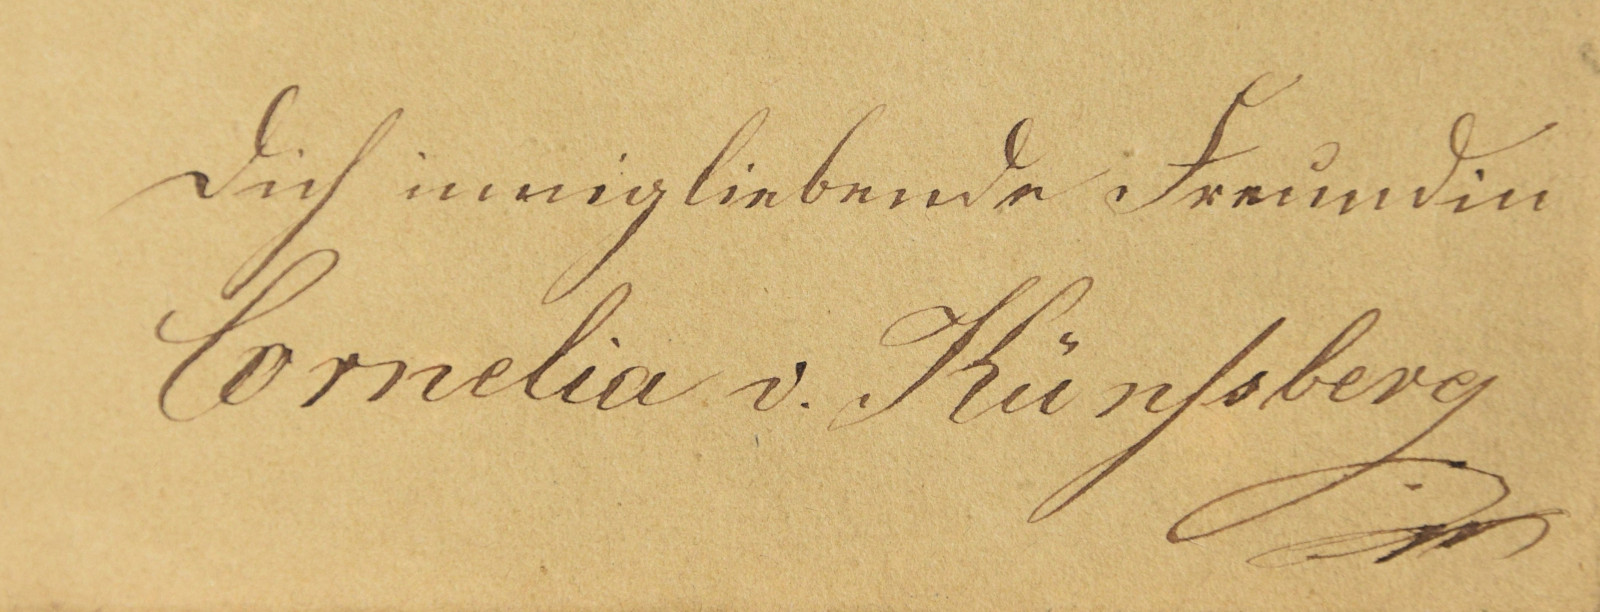 Dich innigliebende Freundin
Cornelia v. Künſsberg